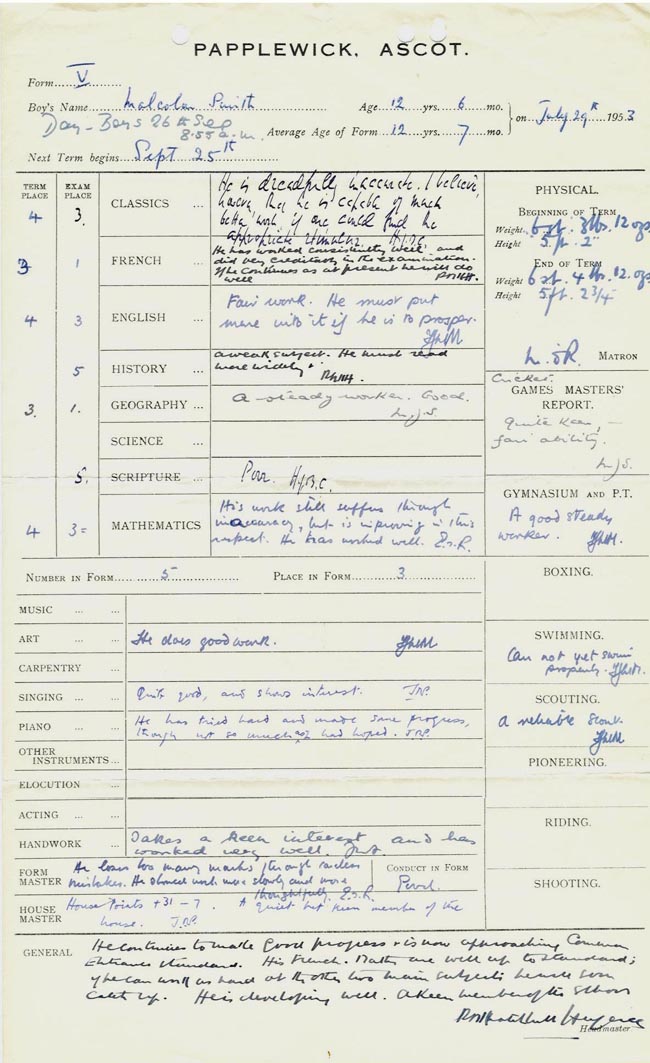 PAPPLEWICK, ASCOT.
Form V
Boy's Name Malcolm Smith Age 12 yrs. 6 mo.
Day-Boys 26th Sep
8.55 a.m.
Average Age of Form 12 yrs. 7 mo.
on July 29th 1953
Next Term begins Sept 25th
TERM PLACE
EXAM PLACE
4 3. CLASSICS ... He is dreadfully inaccurate. I believe,
however, that he is capable of much
better work if one could find the
appropriate stimulus. HJBC
3 1 FRENCH ... He has worked consistently well and
did very creditably in the examination.
If he continues as at present he will do
well
4 3 ENGLISH ... Fair work. He must put
more into it if he is to prosper.
5 HISTORY ... A weak subject. He must read
more widely.
3. 1. GEOGRAPHY ... A steady worker. Good.
SCIENCE ...
5. SCRIPTURE ... Poor. HJB.C.
4 3= MATHEMATICS His work still suffers through
inaccuracy, but is improving in this
respect. He has worked well. E.S.R.
NUMBER IN FORM 5 PLACE IN FORM 3
MUSIC ... ...
ART ... ... He does good work.
CARPENTRY ...
SINGING ... ... Quite good, and shows interest.
PIANO ... ... He has tried hard and made some progress,
though not so much as I had hoped.
OTHER
INSTRUMENTS...
ELOCUTION ...
ACTING ... ...
HANDWORK ... Takes a keen interest and has
worked very well.
FORM MASTER He loses too many marks through careless
mistakes. He should work more slowly and more
thoughtfully. E.S.R.
CONDUCT IN FORM
Good.
HOUSE MASTER House Points +31 -7. A quiet but keen member of the
house.
GENERAL He continues to make good progress & is now approaching Common
Entrance standard. His French & Maths are well up to standard;
if he can work as hard at the other two main subjects he will soon
catch up. He is developing well. A keen member of the School
Headmaster.
PHYSICAL.
BEGINNING OF TERM
Weight 6 st. 3 lbs. 12 ozs
Height 5 ft. 2"
END OF TERM
Weight 6 st 4 lbs. 12 ozs
Height 5 ft. 2 3/4"
MATRON
Cricket.
GAMES MASTERS'
REPORT.
Quite keen, –
fair ability.
GYMNASIUM AND P.T.
A good steady
worker.
BOXING.
SWIMMING.
Can not yet swim
properly.
SCOUTING.
A reliable Scout.
PIONEERING.
RIDING.
SHOOTING.